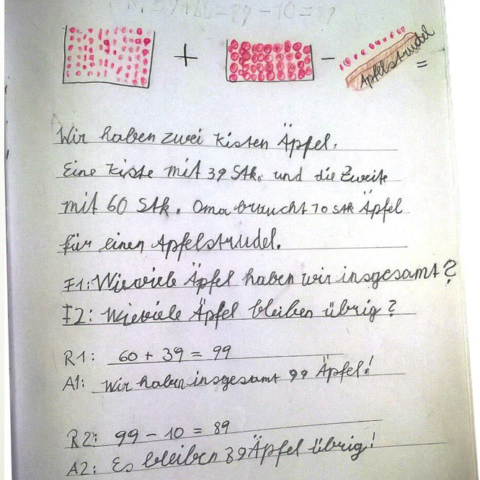 Apfelstrudel
+ - =
Wir haben zwei Kisten Äpfel.
Eine Kiste mit 39 Stk. und die Zweite
mit 60 Stk. Oma braucht 10 Stk Äpfel
für einen Apfelstrudel.
F1: Wieviele Äpfel haben wir insgesamt?
F2: Wieviele Äpfel bleiben übrig?
R1: 60 + 39 = 99
A1: Wir haben insgesamt 99 Äpfel!
R2: 99 - 10 = 89
A2: Es bleiben 89 Äpfel übrig!